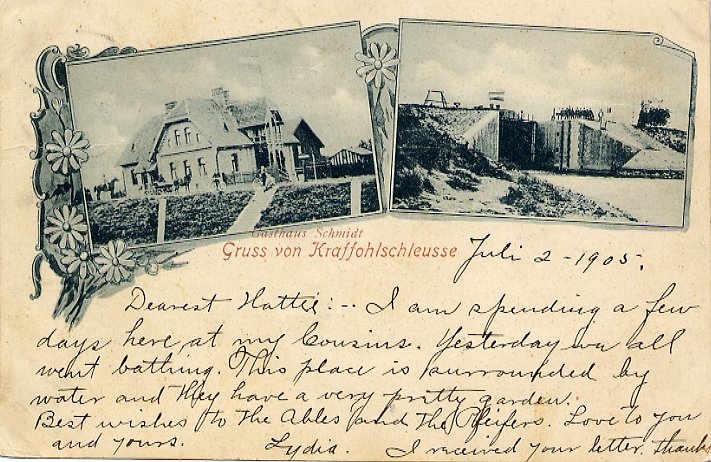 Gasthaus Schmidt
Gruss von Kraffohlschleusse
Juli 2 - 1905.
Dearest Hattie:-- I am spending a few
days here at my Cousins. Yesterday we all
went bathing. This place is surrounded by
water and they have a very pretty garden.
Best wishes to the Ables and the Pfeifers. Love to you
and yours. Lydia. I received your letter, thanks